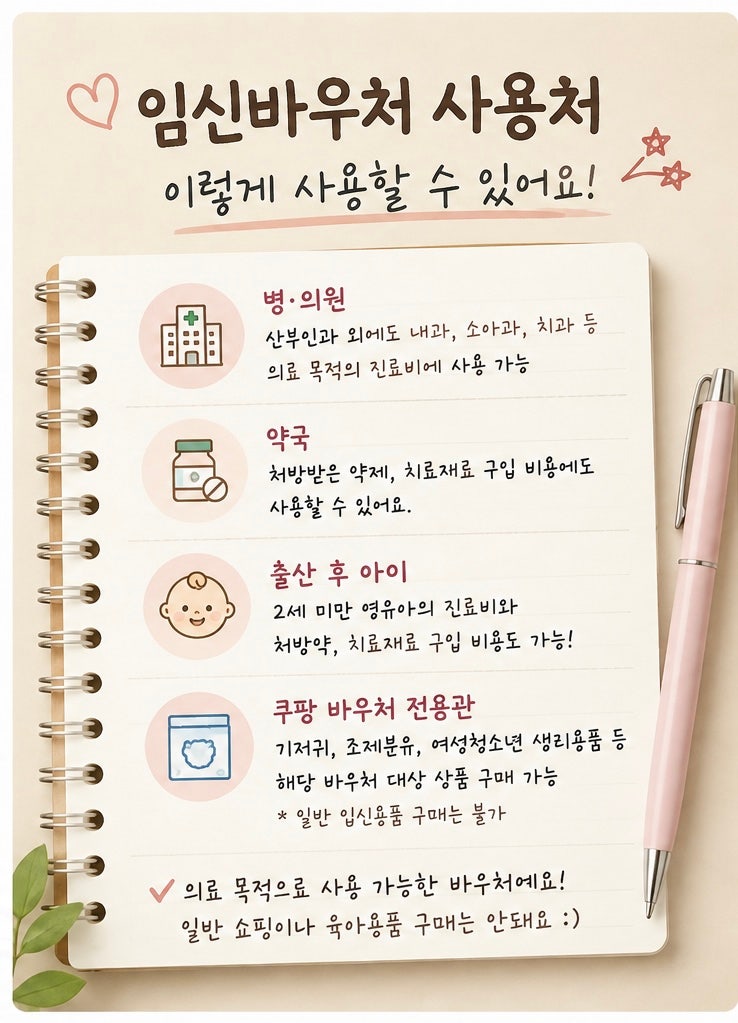 임신바우처 사용처
이렇게 사용할 수 있어요!
병·의원
산부인과 외에도 내과, 소아과, 치과 등
의료 목적의 진료비에 사용 가능
약국
처방받은 약제, 치료재료 구입 비용에도
사용할 수 있어요.
출산 후 아이
2세 미만 영유아의 진료비와
처방약, 치료재료 구입 비용도 가능!
쿠팡 바우처 전용관
기저귀, 조제분유, 여성청소년 생리용품 등
해당 바우처 대상 상품 구매 가능
* 일반 입신용품 구매는 불가
의료 목적으료 사용 가능한 바우처예요!
일반 쇼핑이나 육아용품 구매는 안돼요 :)